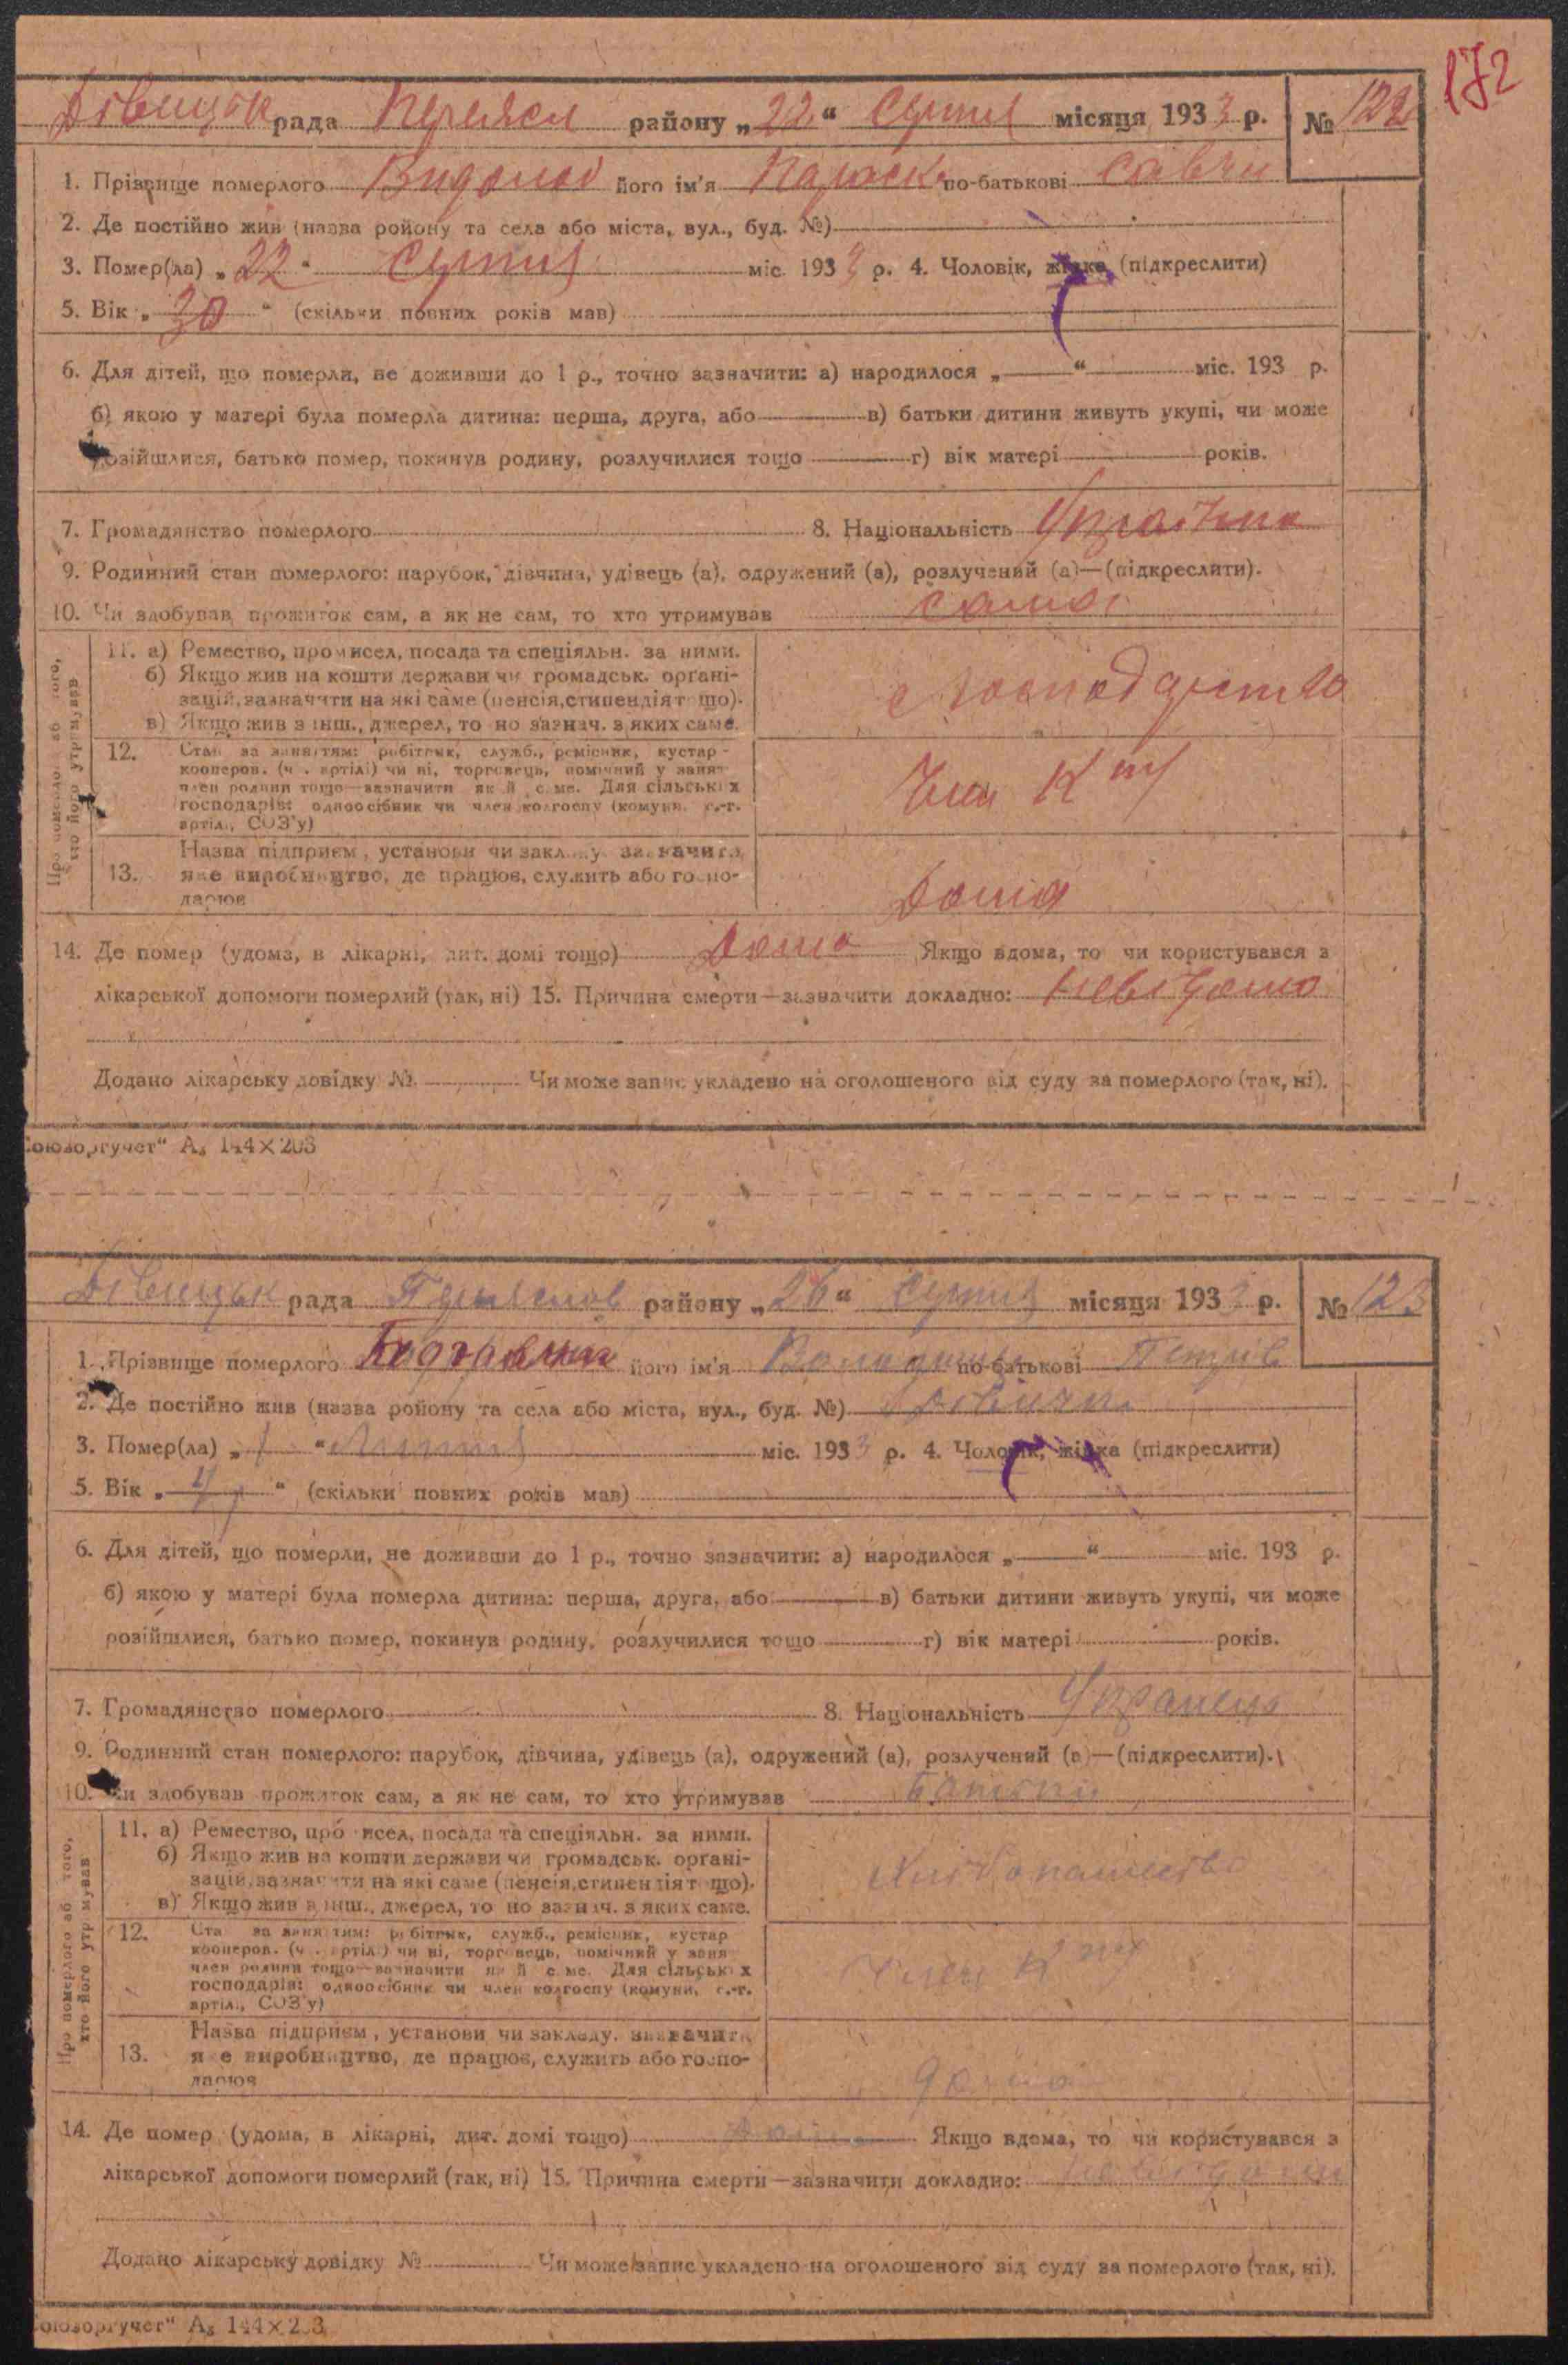 172
Дівицьк рада Переясл району „22“ Серпня місяця 1933 р. № 122
1. Прізвище померлого його ім'я Параска по-батькові Савки
2. Де постійно жив (назва ройону та села або міста, вул., буд. №)
3. Помер(ла) „22“ Серпня міс. 1933 р. 4. Чоловік, жінка (підкреслити)
5. Вік „30“ (скільки повних років мав)
6. Для дітей, що померли, не доживши до 1 р., точно зазначити: а) народилося „ “ міс. 193 р.
б) якою у матері була померла дитина: перша, друга, або в) батьки дитини живуть укупі, чи може
розійшлися, батько помер, покинув родину, розлучилися тощо г) вік матері років.
7. Громадянство померлого 8. Національність
9. Родинний стан померлого: парубок, дівчина, удівець (а), одружений (а), розлучений (а)—(підкреслити).
10. Чи здобував прожиток сам, а як не сам, то хто утримував сама
Про померлого або того, хто його утримував
11. а) Ремество, промисел, посада та спеціяльн. за ними.
б) Якщо жив на кошти держави чи громадськ. органі-
зацій, зазначити на які саме (пенсія, стипендія тощо).
в) Якщо жив з інш., джерел, то но зазнач. з яких саме.
с господарства
12. Стан за заняттям: робітник, служб., ремісник, кустар -
кооперов. (ч . артілі) чи ні, торговець, помічний у занят
член родини тощо—зазначити як й с ме. Для сільських
господарів: одноосібник чи член колгоспу (комуни, с.-г.
артілі, СОЗ'у)
Член К
13. Назва підприєм, установи чи закладу, зазначити
яке виробництво, де працює, служить або госпо-
дарює
Дома
14. Де помер (удома, в лікарні, дит. домі тощо) Дома Якщо вдома, то чи користувався з
лікарської допомоги померлий (так, ні) 15. Причина смерти—зазначити докладно: невідомо
Додано лікарську довідку № Чи може запис укладено на оголошеного від суду за померлого (так, ні).
Союзоргучет“ А₅ 144×203
Дівицьк рада Переяслов району „26“ Серпня місяця 1933 р. № 123
1. Прізвище померлого його ім'я Володимир по-батькові Петрів
2. Де постійно жив (назва ройону та села або міста, вул., буд. №) Дівички
3. Помер(ла) „1“ міс. 1933 р. 4. Чоловік, жінка (підкреслити)
5. Вік „4“ (скільки повних років мав)
6. Для дітей, що померли, не доживши до 1 р., точно зазначити: а) народилося „ “ міс. 193 р.
б) якою у матері була померла дитина: перша, друга, або в) батьки дитини живуть укупі, чи може
розійшлися, батько помер, покинув родину, розлучилися тощо г) вік матері років.
7. Громадянство померлого 8. Національність Українець
9. Родинний стан померлого: парубок, дівчина, удівець (а), одружений (а), розлучений (а)—(підкреслити).
10. Чи здобував прожиток сам, а як не сам, то хто утримував батьки
Про померлого або того, хто його утримував
11. а) Ремество, промисел, посада та спеціяльн. за ними.
б) Якщо жив на кошти держави чи громадськ. органі-
зацій, зазначити на які саме (пенсія, стипендія тощо).
в) Якщо жив з інш., джерел, то но зазнач. з яких саме.
12. Стан за заняттям: робітник, служб., ремісник, кустар
кооперов. (ч . артілі) чи ні, торговець, помічний у заня
член родини тощо—зазначити як й с ме. Для сільських
господарів: одноосібник чи член колгоспу (комуни, с.-г.
артілі, СОЗ'у)
Член К
13. Назва підприєм, установи чи закладу, зазначити
яке виробництво, де працює, служить або госпо-
дарює
дома
14. Де помер (удома, в лікарні, дит. домі тощо) дома Якщо вдома, то чи користувався з
лікарської допомоги померлий (так, ні) 15. Причина смерти—зазначити докладно: невідомо
Додано лікарську довідку № Чи може запис укладено на оголошеного від суду за померлого (так, ні).
Союзоргучет“ А₅ 144×203